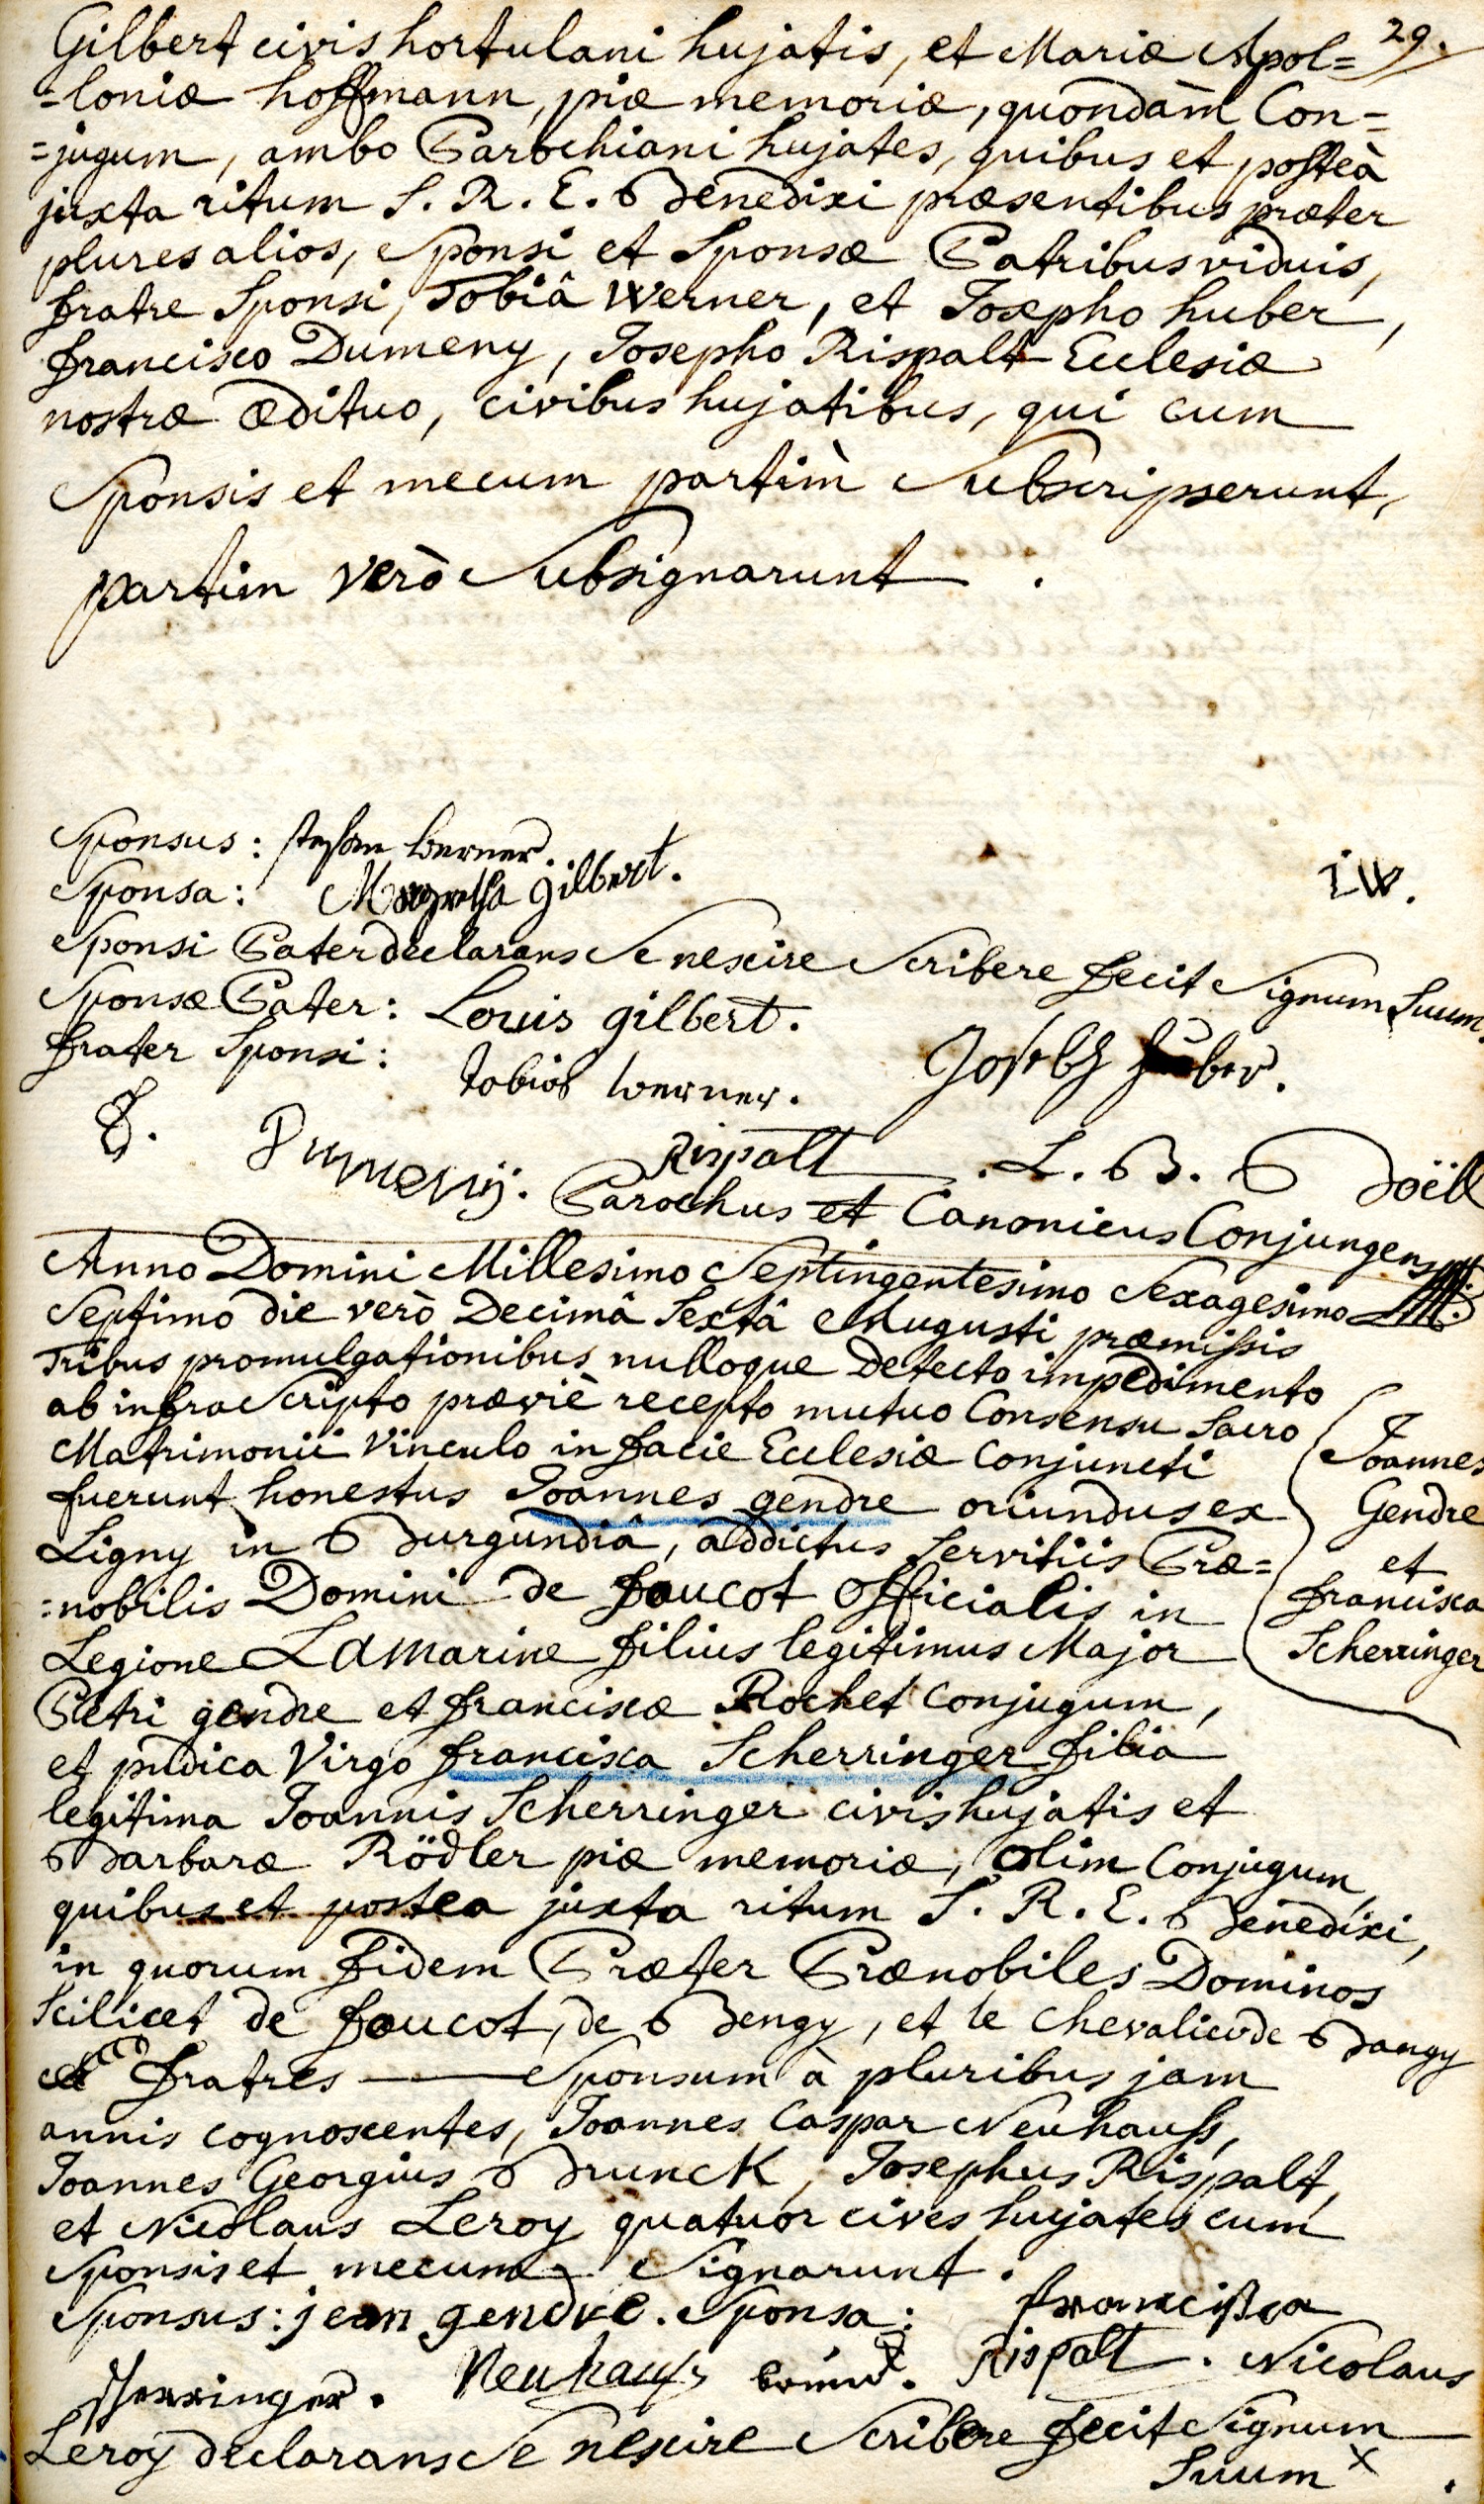 29.
Gilbert civis hortulani hujatis, et Mariæ Apol=
=loniæ hoffmann, piæ memoriæ, quondàm Con=
=jugum, ambo Parochiani hujates, quibus et posteà
juxta ritum S. R. E. Benedixi præsentibus præter
plures alios, Sponsi et Sponsæ Patribus viduis,
fratre Sponsi, Tobiâ Werner, et Josepho huber,
francisco Dumeny, Josepho Rispalt Ecclesiæ
nostræ ædituo, civibus hujatibus, qui cum
Sponsis et mecum partìm Subscripserunt,
partim verò Subsignarunt.
Sponsus: stephan werner.
Sponsa: Margretha gilbert.
I W.
Sponsi Pater declarans Se nescire Scribere fecit Signum Suum.
Sponsæ Pater: Louis gilbert.
frater Sponsi: Tobias werner. Joseph huber.
F. Dumenÿ. Rispalt. L. B. Boëll
Parochus et Canonicus Conjungens
Anno Domini Millesimo Septingentesimo Sexagesimo
Septimo die verò Decimâ Sextâ Augusti præmissis
Tribus promulgationibus nulloque detecto impedimento
ab infra Scripto præviè recepto mutuo Consensu Sacro
Matrimonii Vinculo in facie Ecclesiæ Conjuncti
fuerunt honestus Joannes gendre oriundus ex
Ligny in Burgundiâ, addictus Servitiis Præ=
=nobilis Domini de foucot officialis in
Legione Lamarine filius legitimus Major
Petri gendre et franciscæ Rochet Conjugum,
et pudica Virgo francisca Scherringer filia
legitima Joannis Scherringer civis hujatis et
Barbaræ Rödler piæ memoriæ, olim Conjugum,
quibus et postea juxta ritum S. R. E. Benedixi,
in quorum fidem Præter Prænobiles Dominos
Scilicet de foucot, de Bengy, et le Chevalier de Bangy
fratres Sponsum à pluribus jam
annis cognoscentes, Joannes Caspar Neuhauss,
Joannes Georgius Brunck, Josephus Rispalt,
et Nicolaus Leroy quatuor cives hujates cum
Sponsis et mecum Signarunt.
Sponsus: jean gendre. Sponsa: francisca
Scherringer. Neuhauss Rispalt. Nicolaus
Leroy declarans Se nescire Scribere fecit Signum
Suum x.
Joannes
Gendre
et
francisca
Scherringer